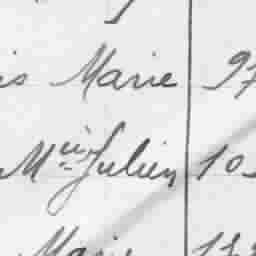 is Marie 97
Mie Julien 10
Marie